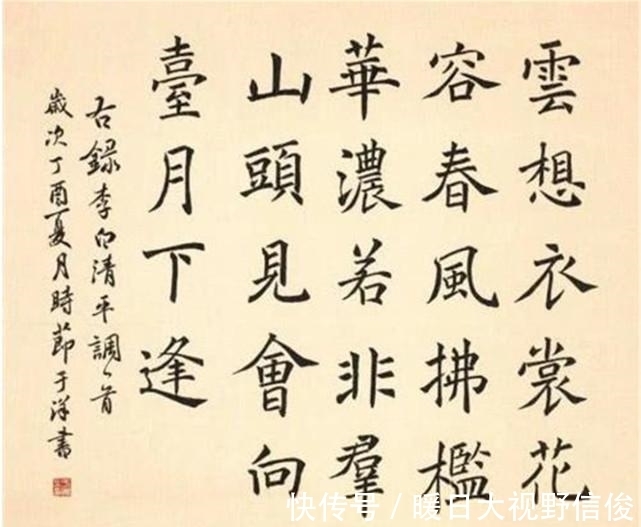 雲想衣裳花
容春風拂檻
華濃若非羣
山頭見會向
臺月下逢
右錄李白清平調一首
歲次丁酉夏月時節于洋書
快传号/暖日大视野信俊